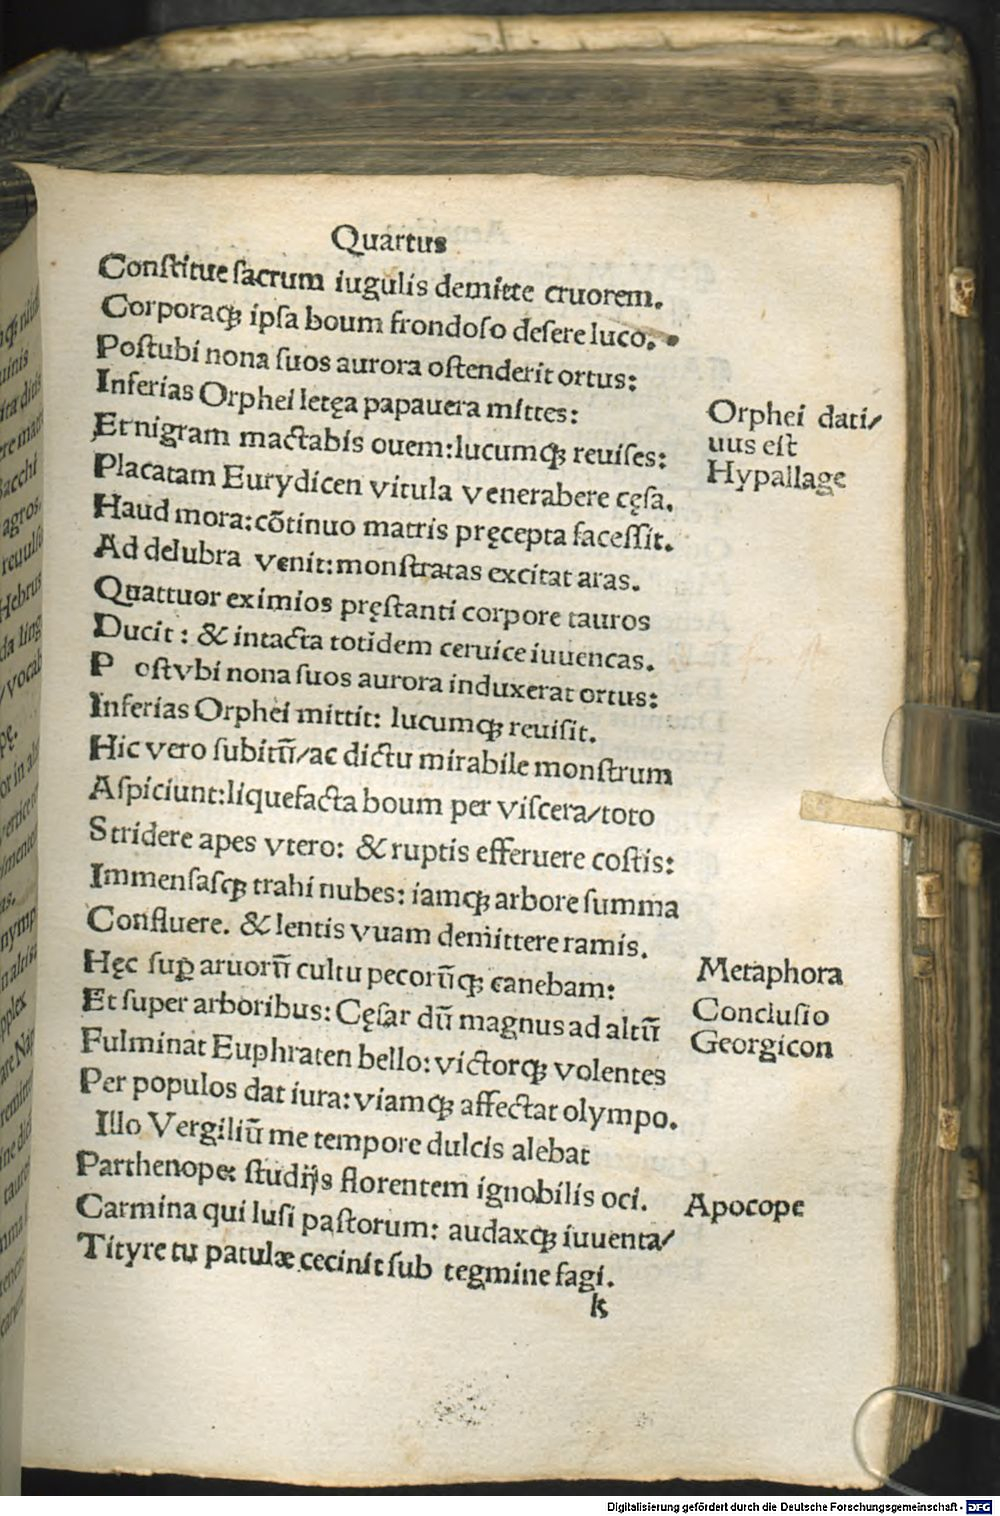 Quartus
Constitue sacrum iugulis demitte cruorem.
Corporaqꝫ ipsa boum frondoso desere luco.
Postubi nona suos aurora ostenderit ortus:
Inferias Orphei letęa papauera mittes:
Et nigram mactabis ouem: lucumqꝫ reuises:
Placatam Eurydicen vitula venerabere cęsa.
Haud mora: cõtinuo matris pręcepta facessit.
Ad delubra venit: monstratas excitat aras.
Quattuor eximios pręstanti corpore tauros
Ducit: & intacta totidem ceruice iuuencas.
P ostvbi nona suos aurora induxerat ortus:
Inferias Orphei mittit: lucumqꝫ reuisit.
Hic vero subitũ/ac dictu mirabile monstrum
Aspiciunt: liquefacta boum per viscera/toto
Stridere apes vtero: & ruptis efferuere costis:
Immensasqꝫ trahi nubes: iamqꝫ arbore summa
Confluere. & lentis vuam demittere ramis.
Hęc suꝑ aruorũ cultu pecorũqꝫ canebam:
Et super arboribus: Cęsar dũ magnus ad altũ
Fulminat Euphraten bello: victorqꝫ volentes
Per populos dat iura: viamqꝫ affectat olympo.
Illo Vergiliũ me tempore dulcis alebat
Parthenope: studijs florentem ignobilis oci.
Carmina qui lusi pastorum: audaxqꝫ iuuenta/
Tityre tu patulæ cecinit sub tegmine fagi.
k
Orphei dati/
uus est
Hypallage
Metaphora
Conclusio
Georgicon
Apocope
Digitalisierung gefördert durch die Deutsche Forschungsgemeinschaft - DFG